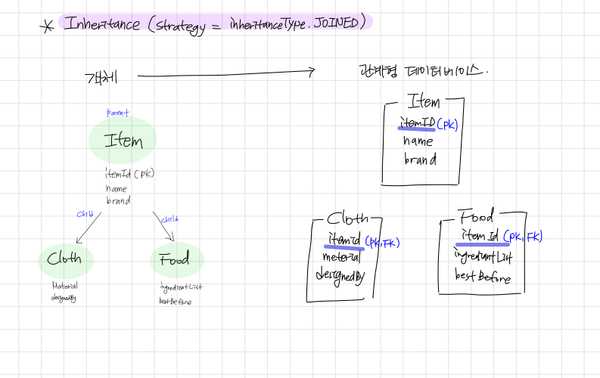 * Inheritance (strategy = inheritanceType.JOINED)
객체
관계형 데이터베이스.
Parent
Item
itemId (PK)
name
brand
child
child
Cloth
Material
designedBy
Food
ingredientList
bestBefore
Item
itemID (PK)
name
brand
Cloth
itemId (PK, FK)
meterial
designedBy
Food
itemId (PK, FK)
ingredientList
bestBefore